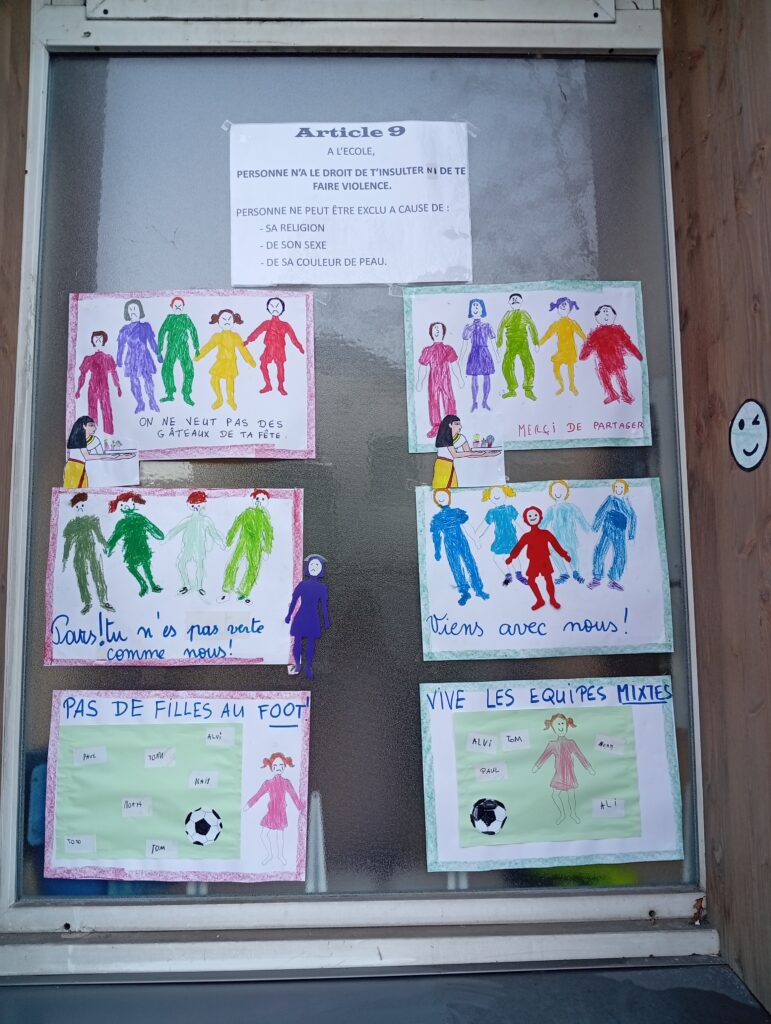 Article 9
A L'ECOLE,
PERSONNE N'A LE DROIT DE T'INSULTER NI DE TE
FAIRE VIOLENCE.
PERSONNE NE PEUT ÊTRE EXCLU A CAUSE DE :
- SA RELIGION
- DE SON SEXE
- DE SA COULEUR DE PEAU.
ON NE VEUT PAS DES
GÂTEAUX DE TA FÊTE.
MERÇI DE PARTAGER
Pars! tu n'es pas verte
comme nous!
Viens avec nous!
PAS DE FILLES AU FOOT!
ALVI
PAUL
NOAH
TOTO
TOM
VIVE LES EQUIPES MIXTES
ALVI
TOM
PAUL
ALI